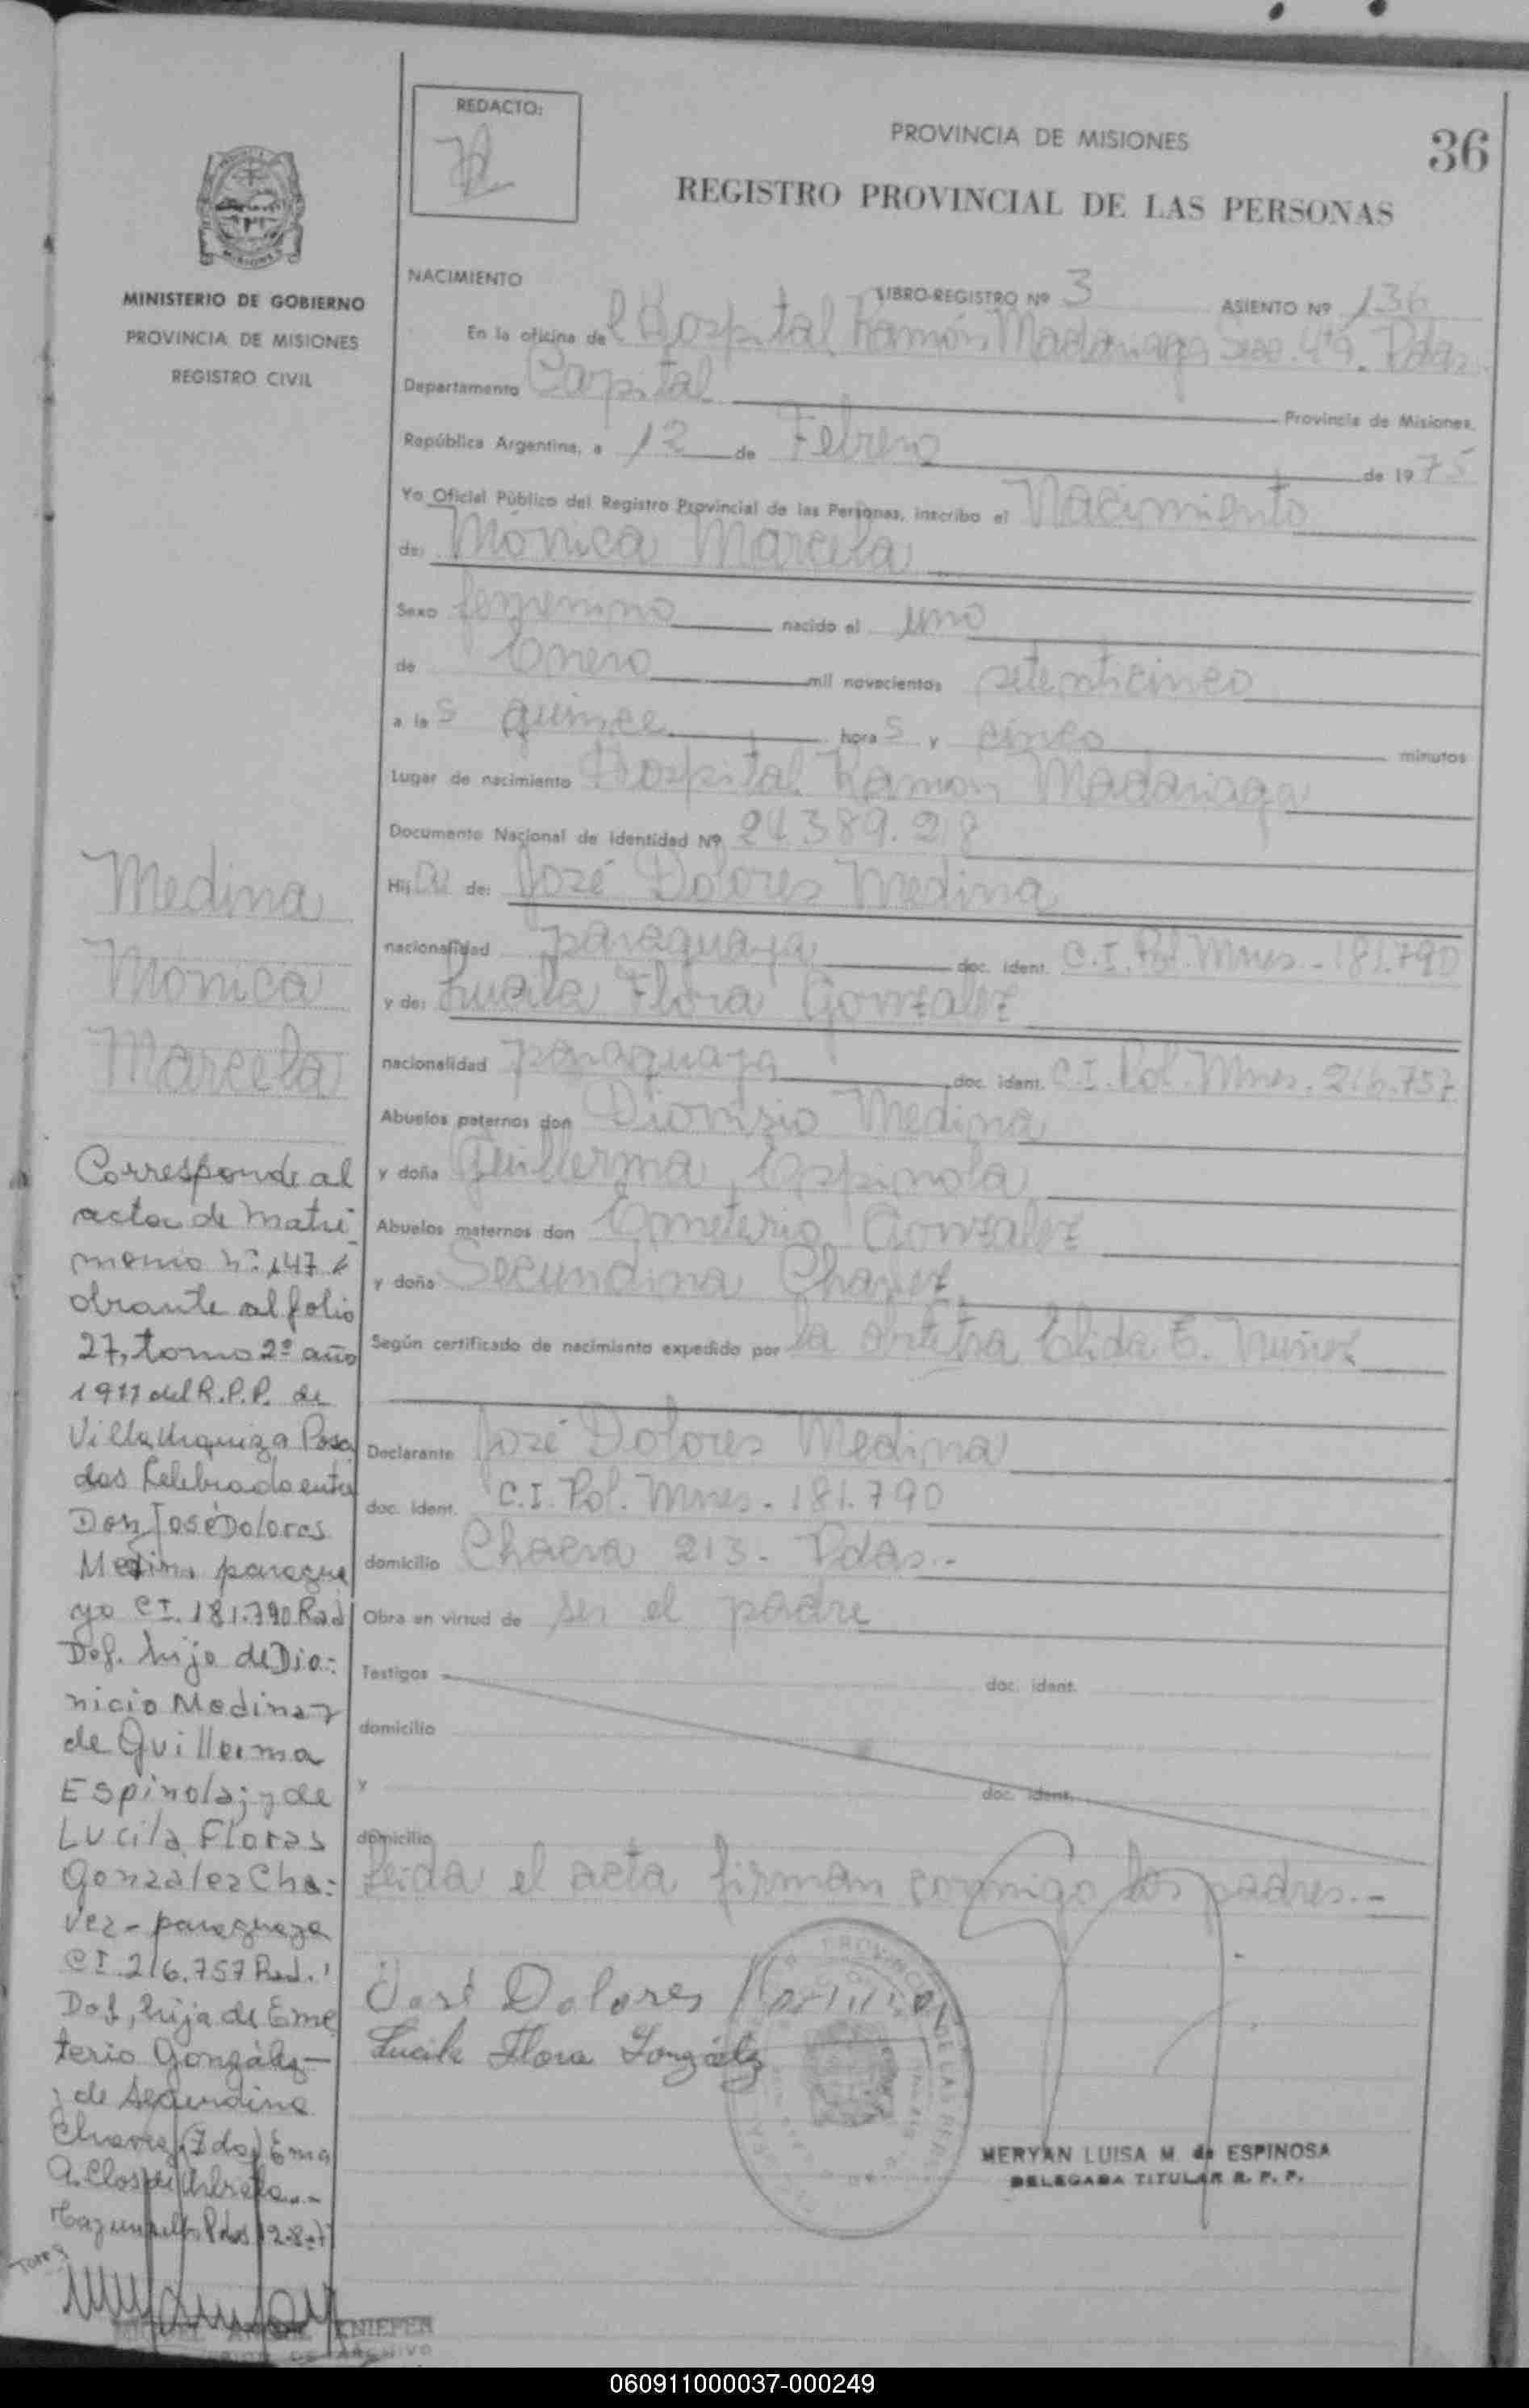 REDACTO:
PROVINCIA DE MISIONES
36
REGISTRO PROVINCIAL DE LAS PERSONAS
MINISTERIO DE GOBIERNO
PROVINCIA DE MISIONES
REGISTRO CIVIL
NACIMIENTO
LIBRO-REGISTRO Nº 3 ASIENTO Nº 136
En la oficina del Hospital Ramón Madariaga Secc. 4ta. Pdas.
Departamento Capital Provincia de Misiones.
República Argentina, a 12 de Febrero de 1975
Yo Oficial Público del Registro Provincial de las Personas, inscribo el Nacimiento
de: Mónica Marcela
Sexo femenino nacido el uno
de Enero mil novecientos setenticinco
a las quince horas y cinco minutos
Lugar de nacimiento Hospital Ramón Madariaga
Documento Nacional de Identidad Nº 24.389.218
Hija de: José Dolores Medina
nacionalidad paraguaya doc. ident. C.I. Pol. Mnes - 181.790
y de: Lucila Flora Gonzalez
nacionalidad paraguaya doc. ident. C.I. Pol. Mnes. 216.757
Abuelos paternos don Dionisio Medina
y doña Guillerma Espinola
Abuelos maternos don Emeterio Gonzalez
y doña Secundina Chavez
Según certificado de nacimiento expedido por la obstetra Elida E. Nuñez
Declarante José Dolores Medina
doc. ident. C.I. Pol. Mnes. 181.790
domicilio Chacra 213. Pdas.-
Obra en virtud de ser el padre
Testigos doc. ident.
domicilio
y doc. ident.
domicilio
Leida el acta firman conmigo los padres.-
José Dolores Medina
Lucila Flora González
MERYAN LUISA M. de ESPINOSA
DELEGADA TITULAR R. P. P.
Medina
Mónica
Marcela
Corresponde al
acta de Matri
monio Nº 147
obrante al folio
27, tomo 2º año
1977 del R.P.P. de
Villa Urquiza Posa
das Celebrado entre
Don José Dolores
Medina paragua
yo CI. 181.790 Rad
Dof. hijo de Dio:
nicio Medina y
de Guillerma
Espinola; y de
Lucila Floras
Gonzalez Cha:
vez - paraguaya
CI 216.757 Rad.
Dof, hija de Eme
terio González
y de Segundina
Chavez (Fdo) Ema
060911000037-000249